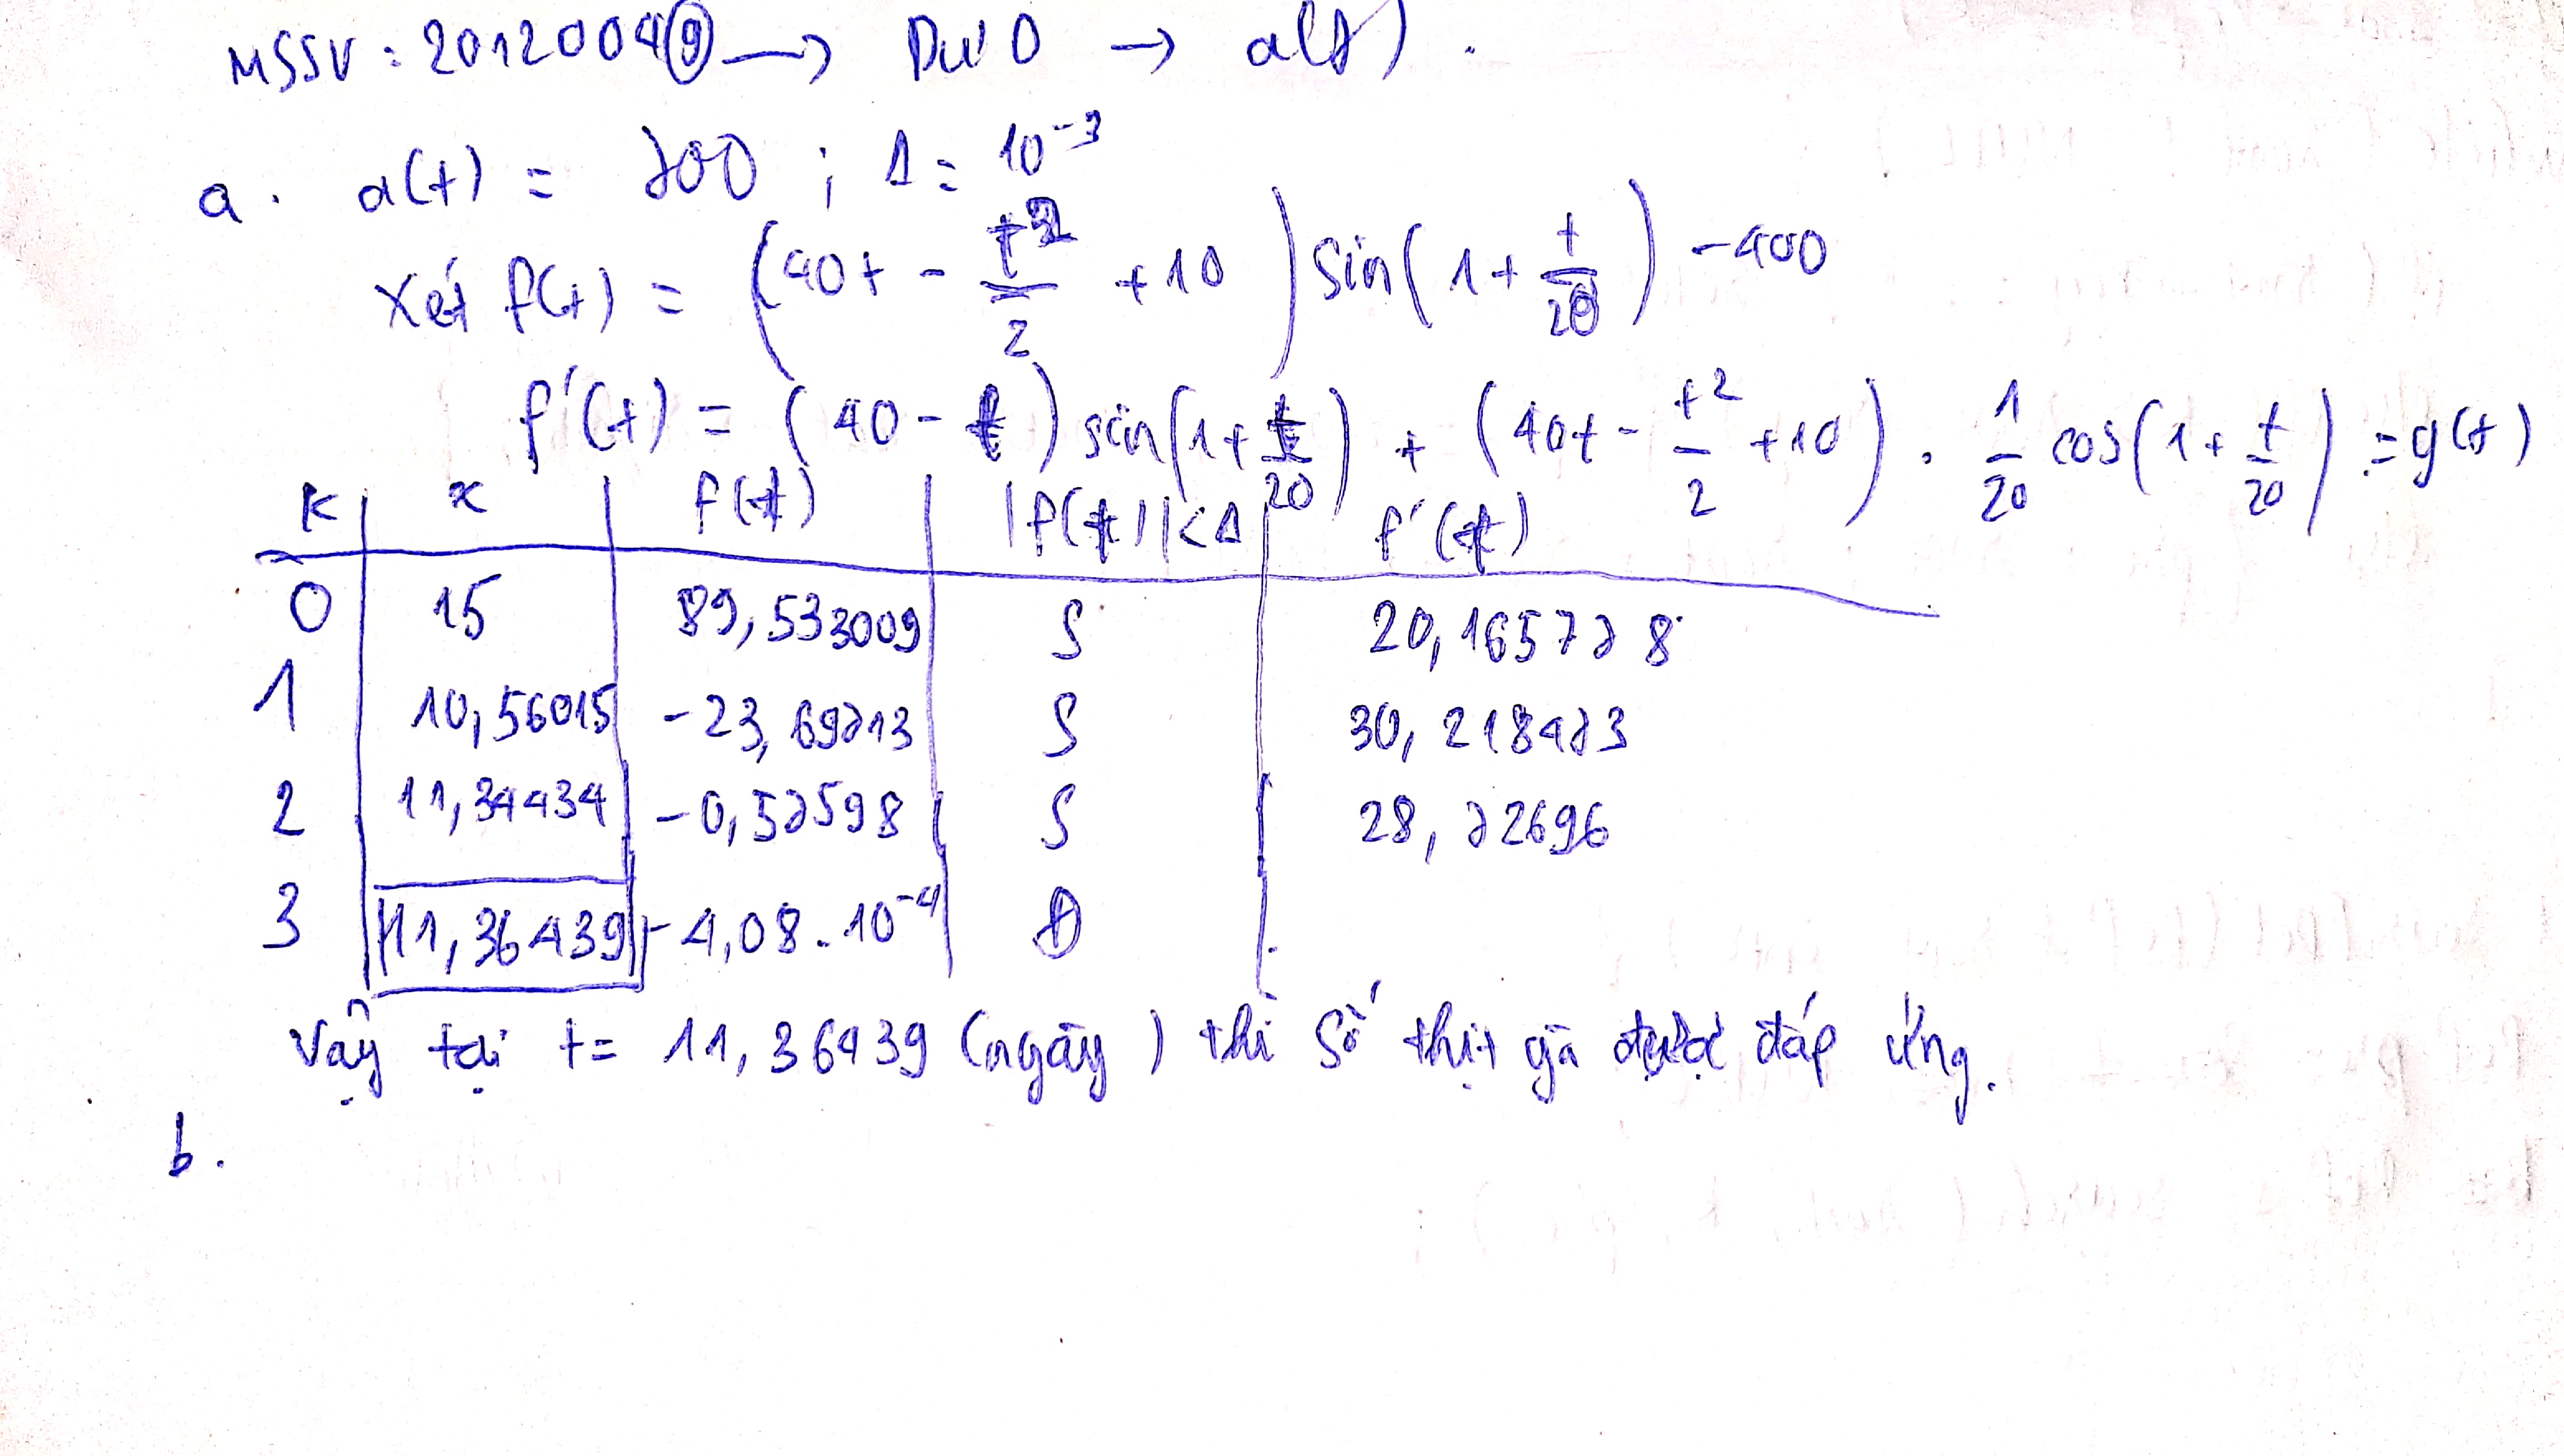 MSSV : 20120049 → Dư 0 → a(t) .
a . a(t) = 700 ; Δ = 10⁻³
Xét f(t) = (40t - t²/2 + 10) sin(1 + t/20) - 400
f'(t) = (40 - t) sin(1 + t/20) + (40t - t²/2 + 10) . 1/20 cos(1 + t/20) = g(t)
K x f(t) |f(t)| < Δ f'(t)
0 15 89,533009 S 20,165778
1 10,56015 -23,69713 S 30,218473
2 11,34434 -0,57598 S 28,72696
3 11,36439 -4,08.10⁻⁴ Đ
Vậy tại t = 11,36439 (ngày) thì số thịt gà được đáp ứng.
b .